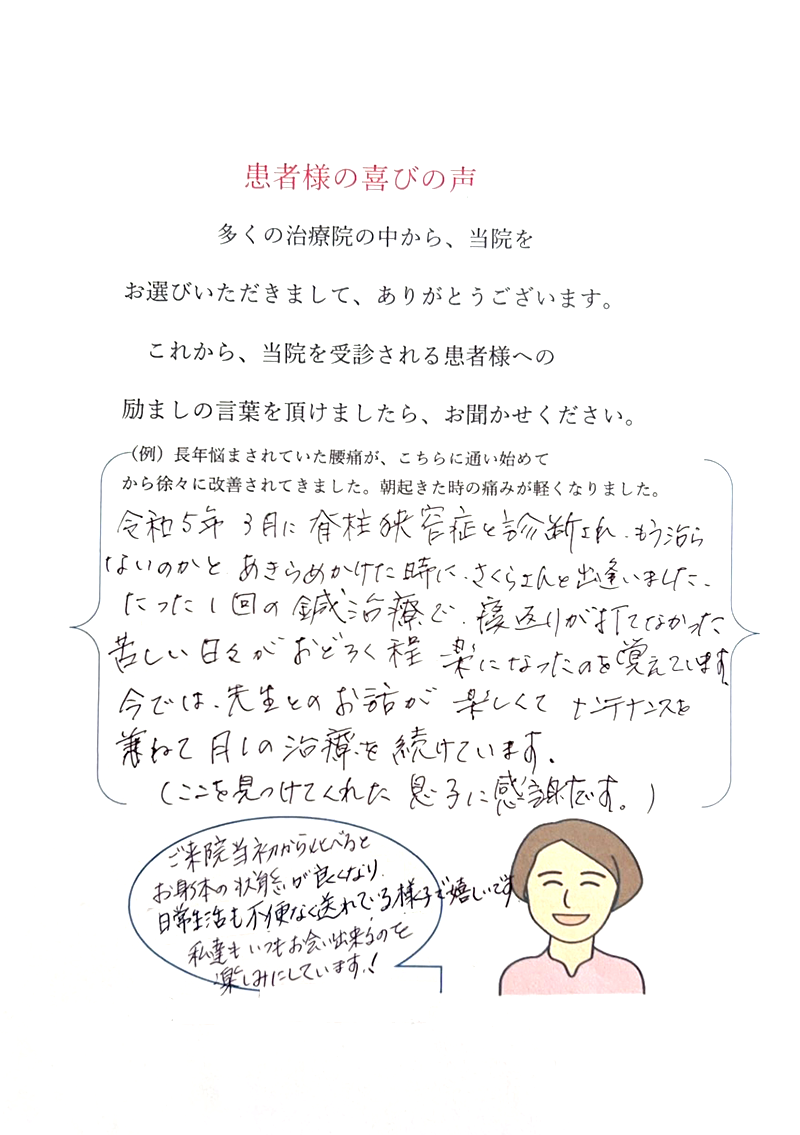 患者様の喜びの声
多くの治療院の中から、当院を
お選びいただきまして、ありがとうございます。
これから、当院を受診される患者様への
励ましの言葉を頂けましたら、お聞かせください。
(例)長年悩まされていた腰痛が、こちらに通い始めて
から徐々に改善されてきました。朝起きた時の痛みが軽くなりました。
令和5年3月に脊柱狭窄症と診断され、もう治ら
ないのかとあきらめかけた時に、さくらさんと出逢いました、
たった1回の鍼治療で、寝返りが打てなかった
苦しい日々がおどろく程楽になったのを覚えています
今では、先生とのお話が楽しくてメンテナンスを
兼ねて月1の治療を続けています。
(ここを見つけてくれた息子に感謝です。)
ご来院当初から比べると
お身体の状態が良くなり
日常生活も不便なく送れている様子で嬉しいです
私達もいつもお会い出来るのを
楽しみにしています!